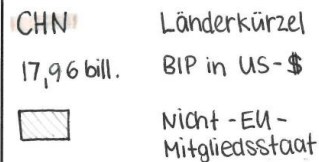 CHN Länderkürzel
17,96 bill. BIP in US-$
Nicht-EU-
Mitgliedsstaat